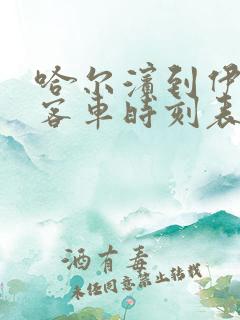 哈尔滨到伊
客车时刻表
酒有毒
未经同意禁止转载